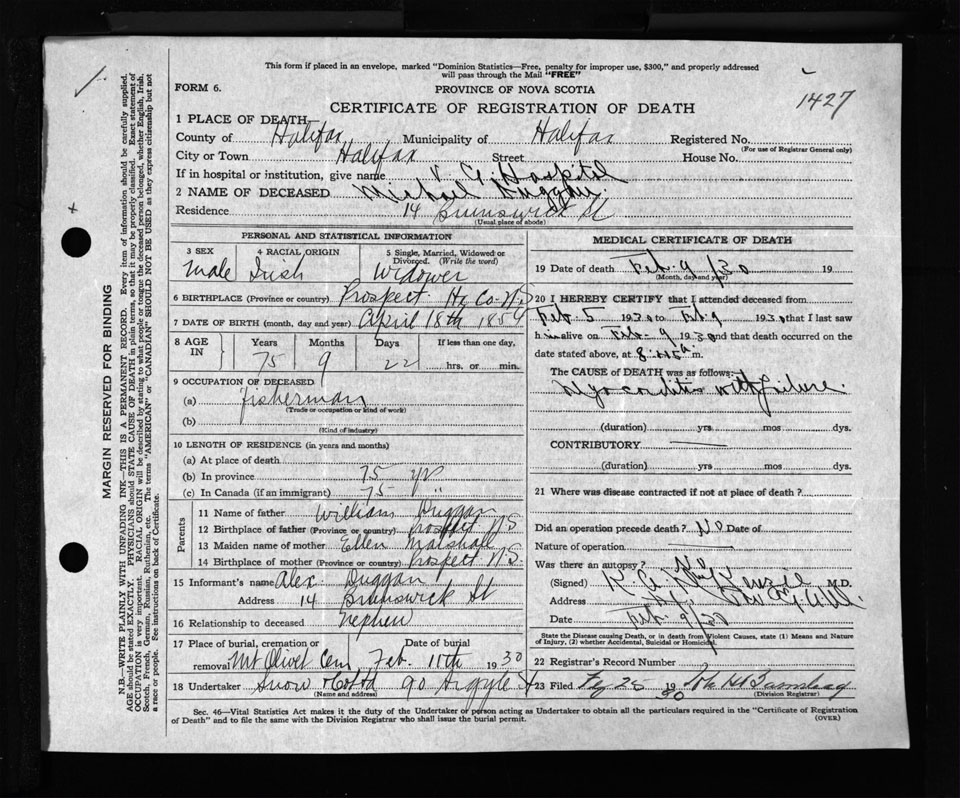 This form if placed in an envelope, marked "Dominion Statistics—Free, penalty for improper use, $300," and properly addressed
will pass through the Mail "FREE"
FORM 6.
PROVINCE OF NOVA SCOTIA
1427
CERTIFICATE OF REGISTRATION OF DEATH
1 PLACE OF DEATH
County of Halifax Municipality of Halifax Registered No.
(For use of Registrar General only)
City or Town Halifax Street House No.
If in hospital or institution, give name V. G. Hospital
2 NAME OF DECEASED Michael Duggan
Residence 14 Brunswick St
(Usual place of abode)
PERSONAL AND STATISTICAL INFORMATION
3 SEX 4 RACIAL ORIGIN 5 Single, Married, Widowed or
Divorced. (Write the word)
Male Irish Widower
6 BIRTHPLACE (Province or country) Prospect Hx Co N.S
7 DATE OF BIRTH (month, day and year) April 18th
8 AGE IN Years Months Days If less than one day,
75 9 22 hrs. or min.
9 OCCUPATION OF DECEASED
(a) fisherman
(Trade or occupation or kind of work)
(b)
(Kind of industry)
10 LENGTH OF RESIDENCE (in years and months)
(a) At place of death
(b) In province 75 yr
(c) In Canada (if an immigrant) 75 "
Parents
11 Name of father William Duggan
12 Birthplace of father (Province or country) Prospect N.S
13 Maiden name of mother Ellen Marshall
14 Birthplace of mother (Province or country) Prospect N.S.
15 Informant's name Alex. Duggan
Address 14 Brunswick St
16 Relationship to deceased nephew
17 Place of burial, cremation or Date of burial
removal Mt Olivet Cem Feb. 11th 1930
18 Undertaker Snow & Co Ltd 90 Argyle St
(Name and address)
MEDICAL CERTIFICATE OF DEATH
19 Date of death Feb. 9 /30 19
(Month, day and year)
20 I HEREBY CERTIFY that I attended deceased from
Feb 5 1930 to Feb 9 1930 that I last saw
him alive on Feb 9 1930 and that death occurred on the
date stated above, at 8. a m.
The CAUSE OF DEATH was as follows:
Myocarditis with failure.
(duration) yrs mos dys.
CONTRIBUTORY
(duration) yrs mos dys.
21 Where was disease contracted if not at place of death?
Did an operation precede death? No Date of
Nature of operation
Was there an autopsy? No
(Signed) M.D.
Address
Date Feb. 9/30
State the Disease causing Death, or in death from Violent Causes, state (1) Means and Nature
of Injury, (2) whether Accidental, Suicidal or Homicidal.
22 Registrar's Record Number
23 Filed 25 1930
(Division Registrar)
Sec. 46—Vital Statistics Act makes it the duty of the Undertaker or person acting as Undertaker to obtain all the particulars required in the "Certificate of Registration
of Death" and to file the same with the Division Registrar who shall issue the burial permit.
(OVER)
MARGIN RESERVED FOR BINDING
N.B.—WRITE PLAINLY WITH UNFADING INK—THIS IS A PERMANENT RECORD. Every item of information should be carefully supplied.
AGE should be stated EXACTLY. PHYSICIANS should STATE CAUSE OF DEATH in plain terms, so that it may be properly classified. Exact statement of
OCCUPATION is very important. RACIAL ORIGIN will be described by stating to what people or tongue the deceased person belonged, whether English, Irish,
Scotch, French, German, Russian, Ruthenian, etc. The terms "AMERICAN" or "CANADIAN" SHOULD NOT BE USED as they express citizenship but not
a race or people. See instructions on back of Certificate.